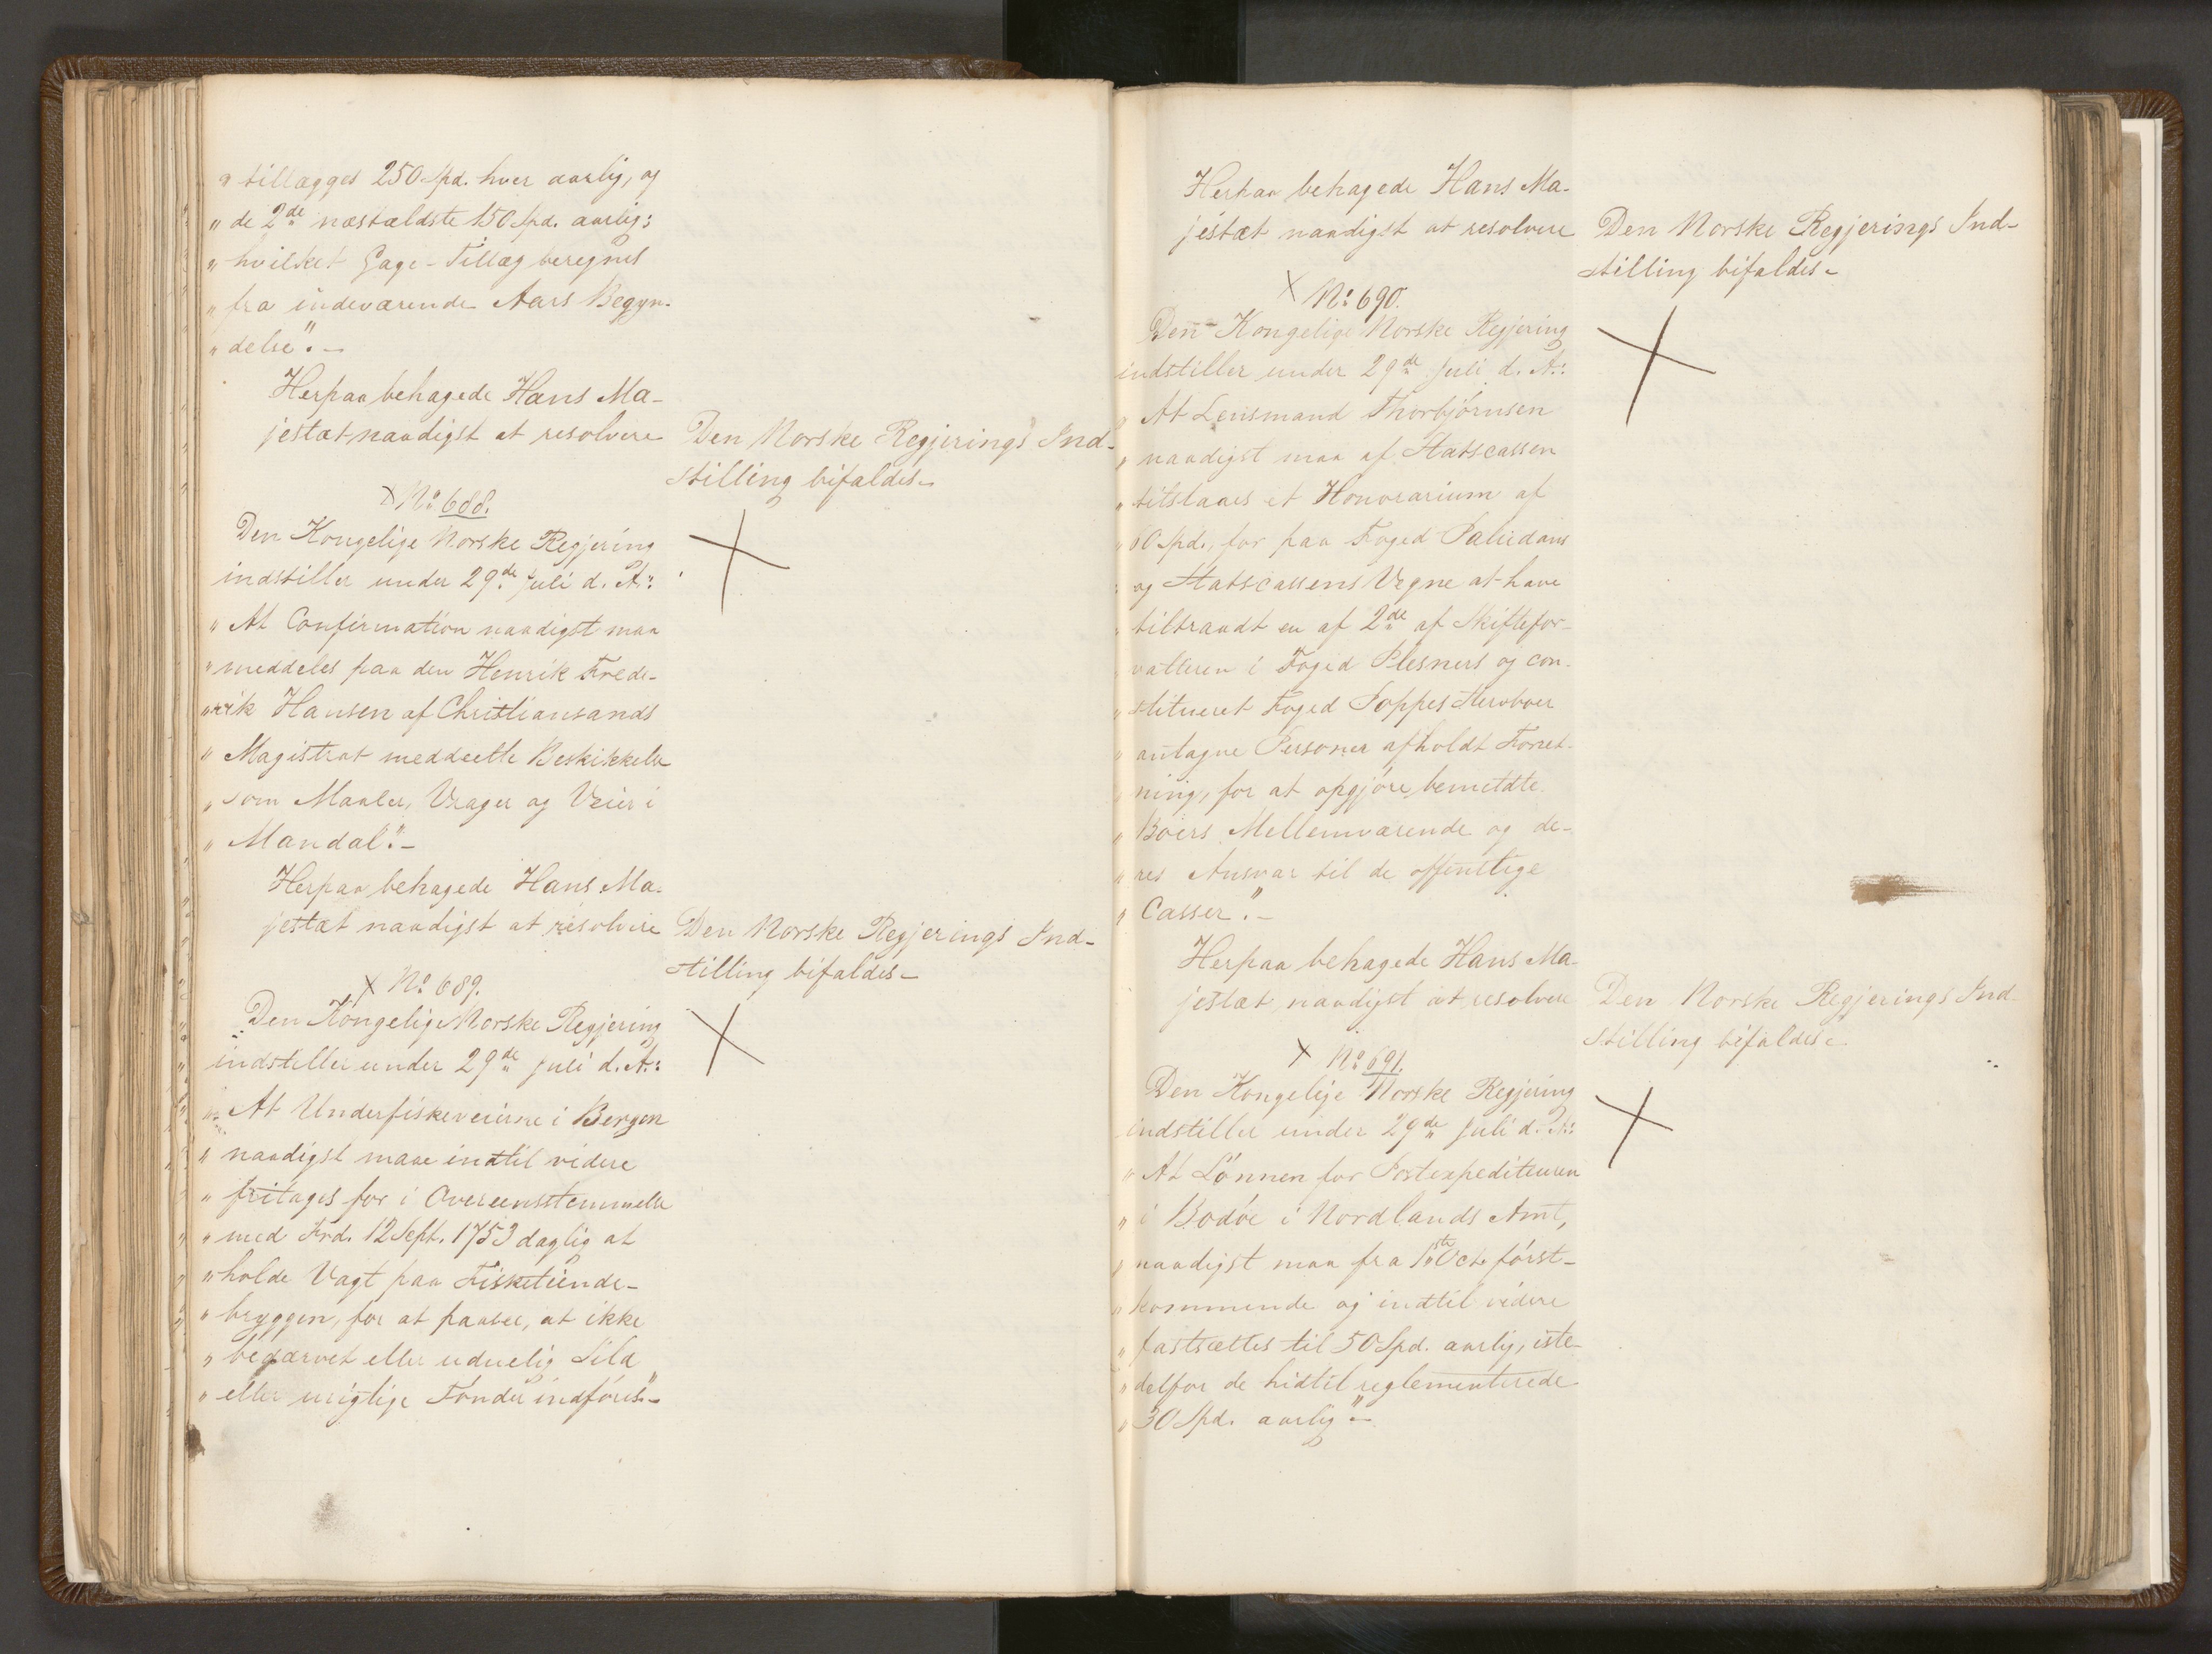 " tillægges 250 Spd. hver aarlig, og
" de 2de næstældste 150 Spd. aarlig;
" hvilket Gage-Tillæg beregnes
" fra indeværende Aars Begyn-
" delse". -
Herpaa behagede Hans Ma-
jestæt naadigst at resolvere
Den Norske Regjerings Ind-
stilling bifaldes -
No 688.
Den Kongelige Norske Regjering
indstiller under 29de Juli d. A.:
" At Confirmation naadigst maa
" meddeles paa den Henrik Frede-
" rik Hansen af Christiansands
" Magistrat meddeelte Beskikkelse
" som Maaler, Vrager og Veier i
" Mandal". -
Herpaa behagede Hans Ma-
jestæt naadigst at resolvere
Den Norske Regjerings Ind-
stilling bifaldes -
No 689.
Den Kongelige Norske Regjering
indstiller under 29de Juli d. A.:
" At Underfiskeveierne i Bergen
" naadigst maae indtil videre
" fritages for i Overeensstemmelse
" med Frd. 12 Sept. 1753 daglig at
" holde Vagt paa Fisketiende-
" bryggen, for at paasee, at ikke
" bedærvet eller uduelig Sild
" eller urigtige Tønder indføres". -
Herpaa behagede Hans Ma-
jestæt naadigst at resolvere
Den Norske Regjerings Ind-
stilling bifaldes -
No 690.
Den Kongelige Norske Regjering
indstiller under 29de Juli d. A.:
" At Lensmand Thorbjørnsen
" naadigst maa af Statscassen
" tilstaaes et Honorarium af
" 60 Spd., for paa Foged Paludans
" og Statscassens Vegne at have
" tiltraadt en af 2de af Skiftefor-
" valteren i Foged Plesners og con-
" stitueret Foged Poppes Stervboer
" antagne Personer afholdt Forret-
" ning, for at opgjøre bemeldte
" Boers Mellemværende og de-
" res Ansvar til de offentlige
" Casser". -
Herpaa behagede Hans Ma-
jestæt naadigst at resolvere
Den Norske Regjerings Ind-
stilling bifaldes -
No 691.
Den Kongelige Norske Regjering
indstiller under 29de Juli d. A.:
" At Lønnen for Postexpediteuren
" i Bodøe i Nordlands Amt,
" naadigst maa fra 1ste Oct. først-
" kommende og indtil videre
" fastsættes til 50 Spd. aarlig, iste-
" detfor de hidtil reglementerede
" 30 Spd. aarlig" -